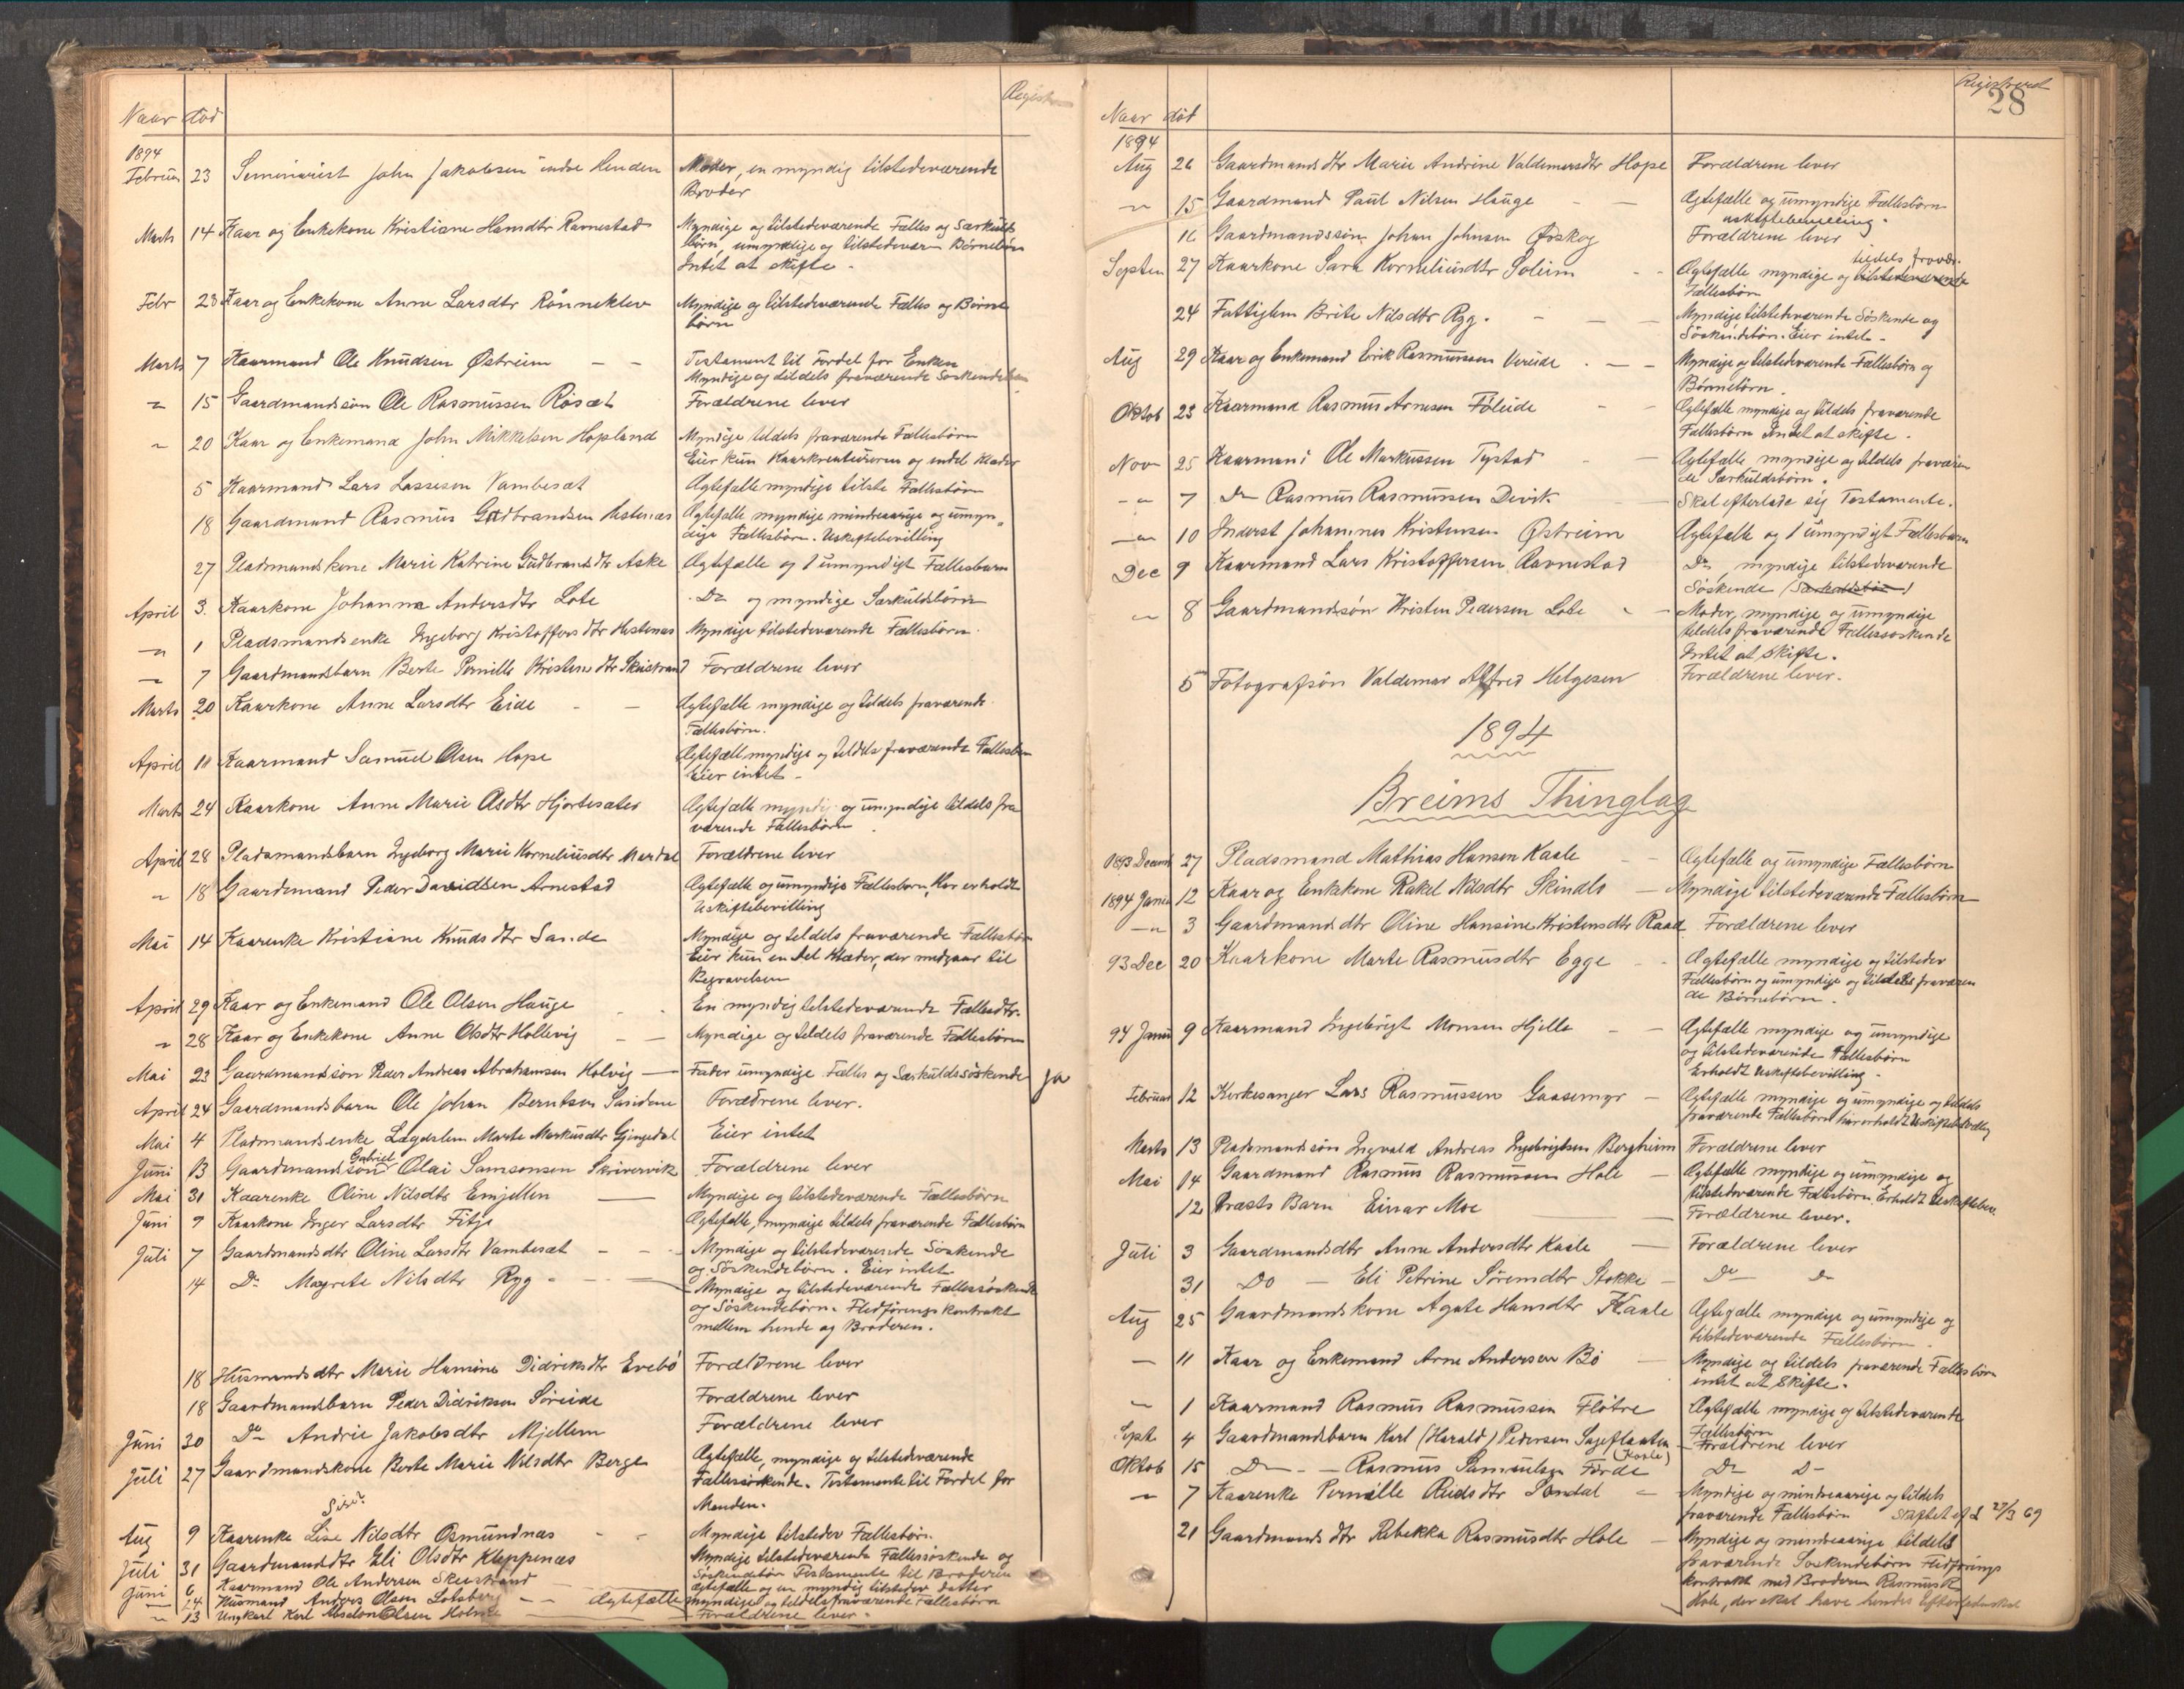 Naar død
Registr
1894
Februar 23 Seminarist John Jakobsen indre Henden Moder, en myndig tilstedeværende
Broder
Marts 14 Kaar og Enkekone Kristiane Hansdtr Ravnestad Myndige og tilstedeværende Fælles og Særkuld
børn, umyndige og tilstedevær Børnebørn
Intet at skifte.
Febr 23 Kaar og Enkekone Anne Larsdtr Rønneklev Myndige og tilstedeværende Fælles og Børne
børn
Marts 7 Kaarmand Ole Knudsen Østreim Testament til Fordel for Enken
Myndige og tildels fraværende Søskendebørn
" 15 Gaardmandssøn Ole Rasmussen Røsæt Forældrene lever
" 20 Kaar og Enkemand John Mikkelsen Hopland Myndige tildels fraværende Fællesbørn
Eier kun Kaarkreaturerne og endel Klæder
5 Kaarmand Lars Lassesen Vambesæt Ægtefælle myndige tilste Fællesbørn
18 Gaardmand Rasmus Gudbrandsen Hestenæs Ægtefælle myndige mindreaarige og umyn,
dige Fællesbørn. Uskiftebevilling
27 Pladsmandskone Marie Katrine Gudbrandsdtr Aske Ægtefælle og 1 umyndigt Fællesbarn
April 3. Kaarkone Johanna Andersdtr Lote Do og myndige Særkuldsbørn
" 1 Pladsmandsenke Ingeborg Kristoffersdtr Hestenæs Myndige tilstedeværende Fællesbørn.
" 7 Gaardmandsbarn Berte Pernille Kristensdtr Skeistrand Forældrene lever
Marts 20 Kaarkone Anne Larsdtr Eide Ægtefælle myndige og tildels fraværende
Fællesbørn.
April 11 Kaarmand Samuel Olsen Hope Ægtefælle myndige og tildels fraværende Fællesbørn
Eier intet
Marts 24 Kaarkone Anne Marie Olsdtr Hjortesæter Ægtefælle myndi og umyndige tildels fra
værende Fællesbørn
April 28 Pladsmandsbarn Ingeborg Marie Korneliusdtr Mardal Forældrene lever
" 18 Gaardmand Peder Davidsen Arnestad Ægtefælle og umyndige Fællesbørn, Har erholdt
Uskiftebevilling
Mai 14 Kaarenke Kristiane Knudsdtr Sande Myndige og tildels fraværende Fællesbørn
Eier kun en Del Klæder, der medgaar til
Begravelsen
April 29 Kaar og Enkemand Ole Olsen Hauge En myndig tilstedeværende Fællesdtr.
" 28 Kaar og Enkekone Anne Olsdtr Hollevig Myndige og tildels fraværende Fællesbørn
Mai 23 Gaardmandssøn Peder Andreas Abrahamsen Holvig Fader umyndige Fælles og Særkuldssøskende ja
April 24 Gaardmandsbarn Ole Johan Berntsen Forældrene lever.
Mai 4 Pladsmandsenke Lægdslem Marte Markusdtr Gjengedal Eier intet
Gabriel
Juni 13 Gaardmandssøn Olai Samsonsen Skrivervik Forældrene lever
Mai 31 Kaarenke Oline Nilsdtr Emjellen Myndige og tilstedeværende Fællesbørn
Juni 9 Kaarkone Inger Larsdtr Fitje Ægtefælle, myndige tildels fraværende Fællesbørn
Juli 7 Gaardmandsdtr Oline Larsdtr Vambesæt Myndige og tilstedeværende Søskende
og Søskendebørn. Eier intet
14 Do Magrete Nilsdtr Ryg Myndige og tilstedeværende Fællessøskende
og Søskendebørn. Fledføringskontrakt
mellem hende og Broderen.
18 Husmandsdtr Marie Hansine Didriksdtr Evebø Forældrene lever
18 Gaardmandsbarn Peder Didriksen Søreide Forældrene lever
Juni 30 Do Andrie Jakobsdtr Mjellem Forældrene lever
Juli 27 Gaardmandskone Berte Marie Nilsdtr Berge Ægtefælle, myndige og tilstedeværende
Fællessøskende. Testamente til Fordel for
Manden.
Aug 9 Kaarenke Lise Nilsdtr Osmundnæs Myndige tilstedev Fællesbørn.
Juli 31 Gaardmandsdtr Eli Olsdtr Kleppenæs Myndige tilstedeværende Fællessøskende og
Søskendebørn Testamente til Broderen
Juni 6 Kaarmand Ole Andersen Skeistrand Ægtefælle og en myndig tilstedev datter
" 24 Husmand Anders Olsen Lotsberg Ægtefælle myndige og tildels fraværende Fællesbørn
" 13 Ungkarl Karl Absalon Olsen Holme Forældrene lever.
Registreret
28
Naar død
1894
Aug 26 Gaardmandsdtr Marie Andrine Valdemarsdtr Hope Forældrene lever
" 15 Gaardmand Paul Nilsen Hauge Ægtefælle og umyndige Fællesbørn
uskiftebevilling.
16 Gaardmandssøn Johan Johnsen Øvskog Forældrene lever
tildels fravær.
Septem 27 Kaarkone Sara Korneliusdtr Soleim Ægtefælle myndige og tilstedeværende
Fællesbørn
24 Fattiglem Brite Nilsdtr Ryg. Myndige tilstedeværende Søskende og
Søskendebørn. Eier intet.
Aug 29 Kaar og Enkemand Eirik Rasmussen Vereide Myndige og tilstedeværende Fællesbørn og
Børnebørn.
Oktob 23 Kaarmand Rasmus Arnesen Føleide Ægtefælle myndige og tildels fraværende
Fællesbørn Intet at skifte.
Nov 25 Kaarmand Ole Markussen Tystad Ægtefælle myndige og tildels fraværen
de Særkuldsbørn.
" 7 Do Rasmus Rasmussen Devik Skal efterlade sig Testamente.
" 10 Inderst Johannes Kristensen Østreim Ægtefælle og 1 umyndigt Fællesbarn
Dec 9 Kaarmand Lars Kristoffersen Ravnestad Do myndige tilstedeværende
Søskende (Særkuldsbørn)
" 8 Gaardmandssøn Kristen Pedersen Lote Moder, myndige og umyndige
tildels fraværende Fællessøskende
Intet at skifte.
5 Fotografsøn Valdemar Alfred Helgesen Forældrene lever.
1894
Breims Thinglag
1893 Decemb 27 Pladsmand Mathias Hansen Kaale Ægtefælle og umyndige Fællesbørn
1894 Janu 12 Kaar og Enkekone Rakel Nilsdtr Skindlo Myndige tilstedeværende Fællesbørn
" 3 Gaardmandsdtr Oline Hansine Kristensdtr Raad Forældrene lever
93 Dec 20 Kaarkone Marte Rasmusdtr Egge Ægtefælle myndige og tilstedev
Fællesbørn og umyndige og tildels fraværen
de Børnebørn.
94 Janu 9 Kaarmand Ingebrigt Monsen Hjelle Ægtefælle myndige og umyndige
og tilstedeværende Fællesbørn
Erholdt Uskiftebevilling.
Februar 12 Kirkesanger Lars Rasmussen Gaasemyr Ægtefælle myndige og umyndige og tildels
fraværende Fællesbørn har erholdt Uskiftebevilling
Marts 13 Pladsmandssøn Ingvald Andreas Ingebrigtsen Bergheim Forældrene lever
Mai 14 Gaardmand Rasmus Rasmussen Hole Ægtefælle myndige og umyndige og
tilstedeværende Fællesbørn. Erholdt Uskiftebev.
12 Præsts Barn Einar Moe Forældrene lever.
Juli 3 Gaardmandsdtr Anne Andersdtr Kaale Forældrene lever
31 Do Eli Petrine Sørensdtr Stokke Do Do
Aug 25 Gaardmandskone Agate Hansdtr Kaale Ægtefælle myndige og umyndige og
tilstedeværende Fællesbørn.
— 11 Kaar og Enkemand Arne Andersen Bø Myndige og tildels fraværende Fællesbørn
intet at skifte.
" 1 Kaarmand Rasmus Rasmussen Fløtre Ægtefælle myndige og tilstedeværende
Fællesbørn
Sept. 4 Gaardmandsbarn Karl (Harald) Pedersen Sageflaaten Forældrene lever
(Kaale)
Oktob 15 Do Rasmus Samuelsen Førde Do Do
" 7 Kaarenke Pernille Sandal Myndige og mindreaarige og tildels
fraværende Fællesbørn Skiftet 27/3 69
21 Gaardmandsdtr Rebekka Rasmusdtr Hole Myndige og mindreaarige tildels
fraværende Søskendebørn Fledførings
kontrakt med Broderen Rasmus R.
Hole, der skal have hendes Efterladenskab